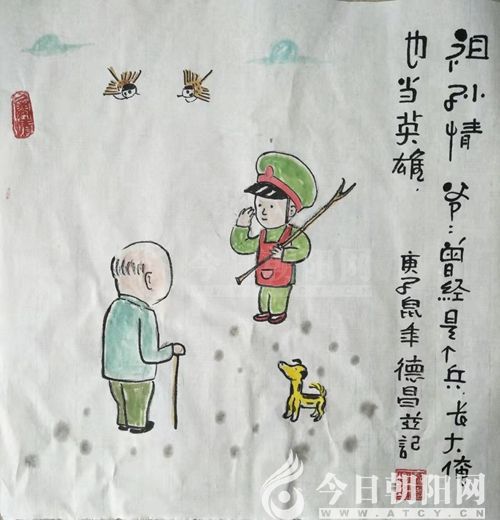 祖孙情 爷:曾经是个兵,长大俺
也当英雄.
庚子鼠年 德昌并记
今日朝阳网
WWW.ATCY.CN